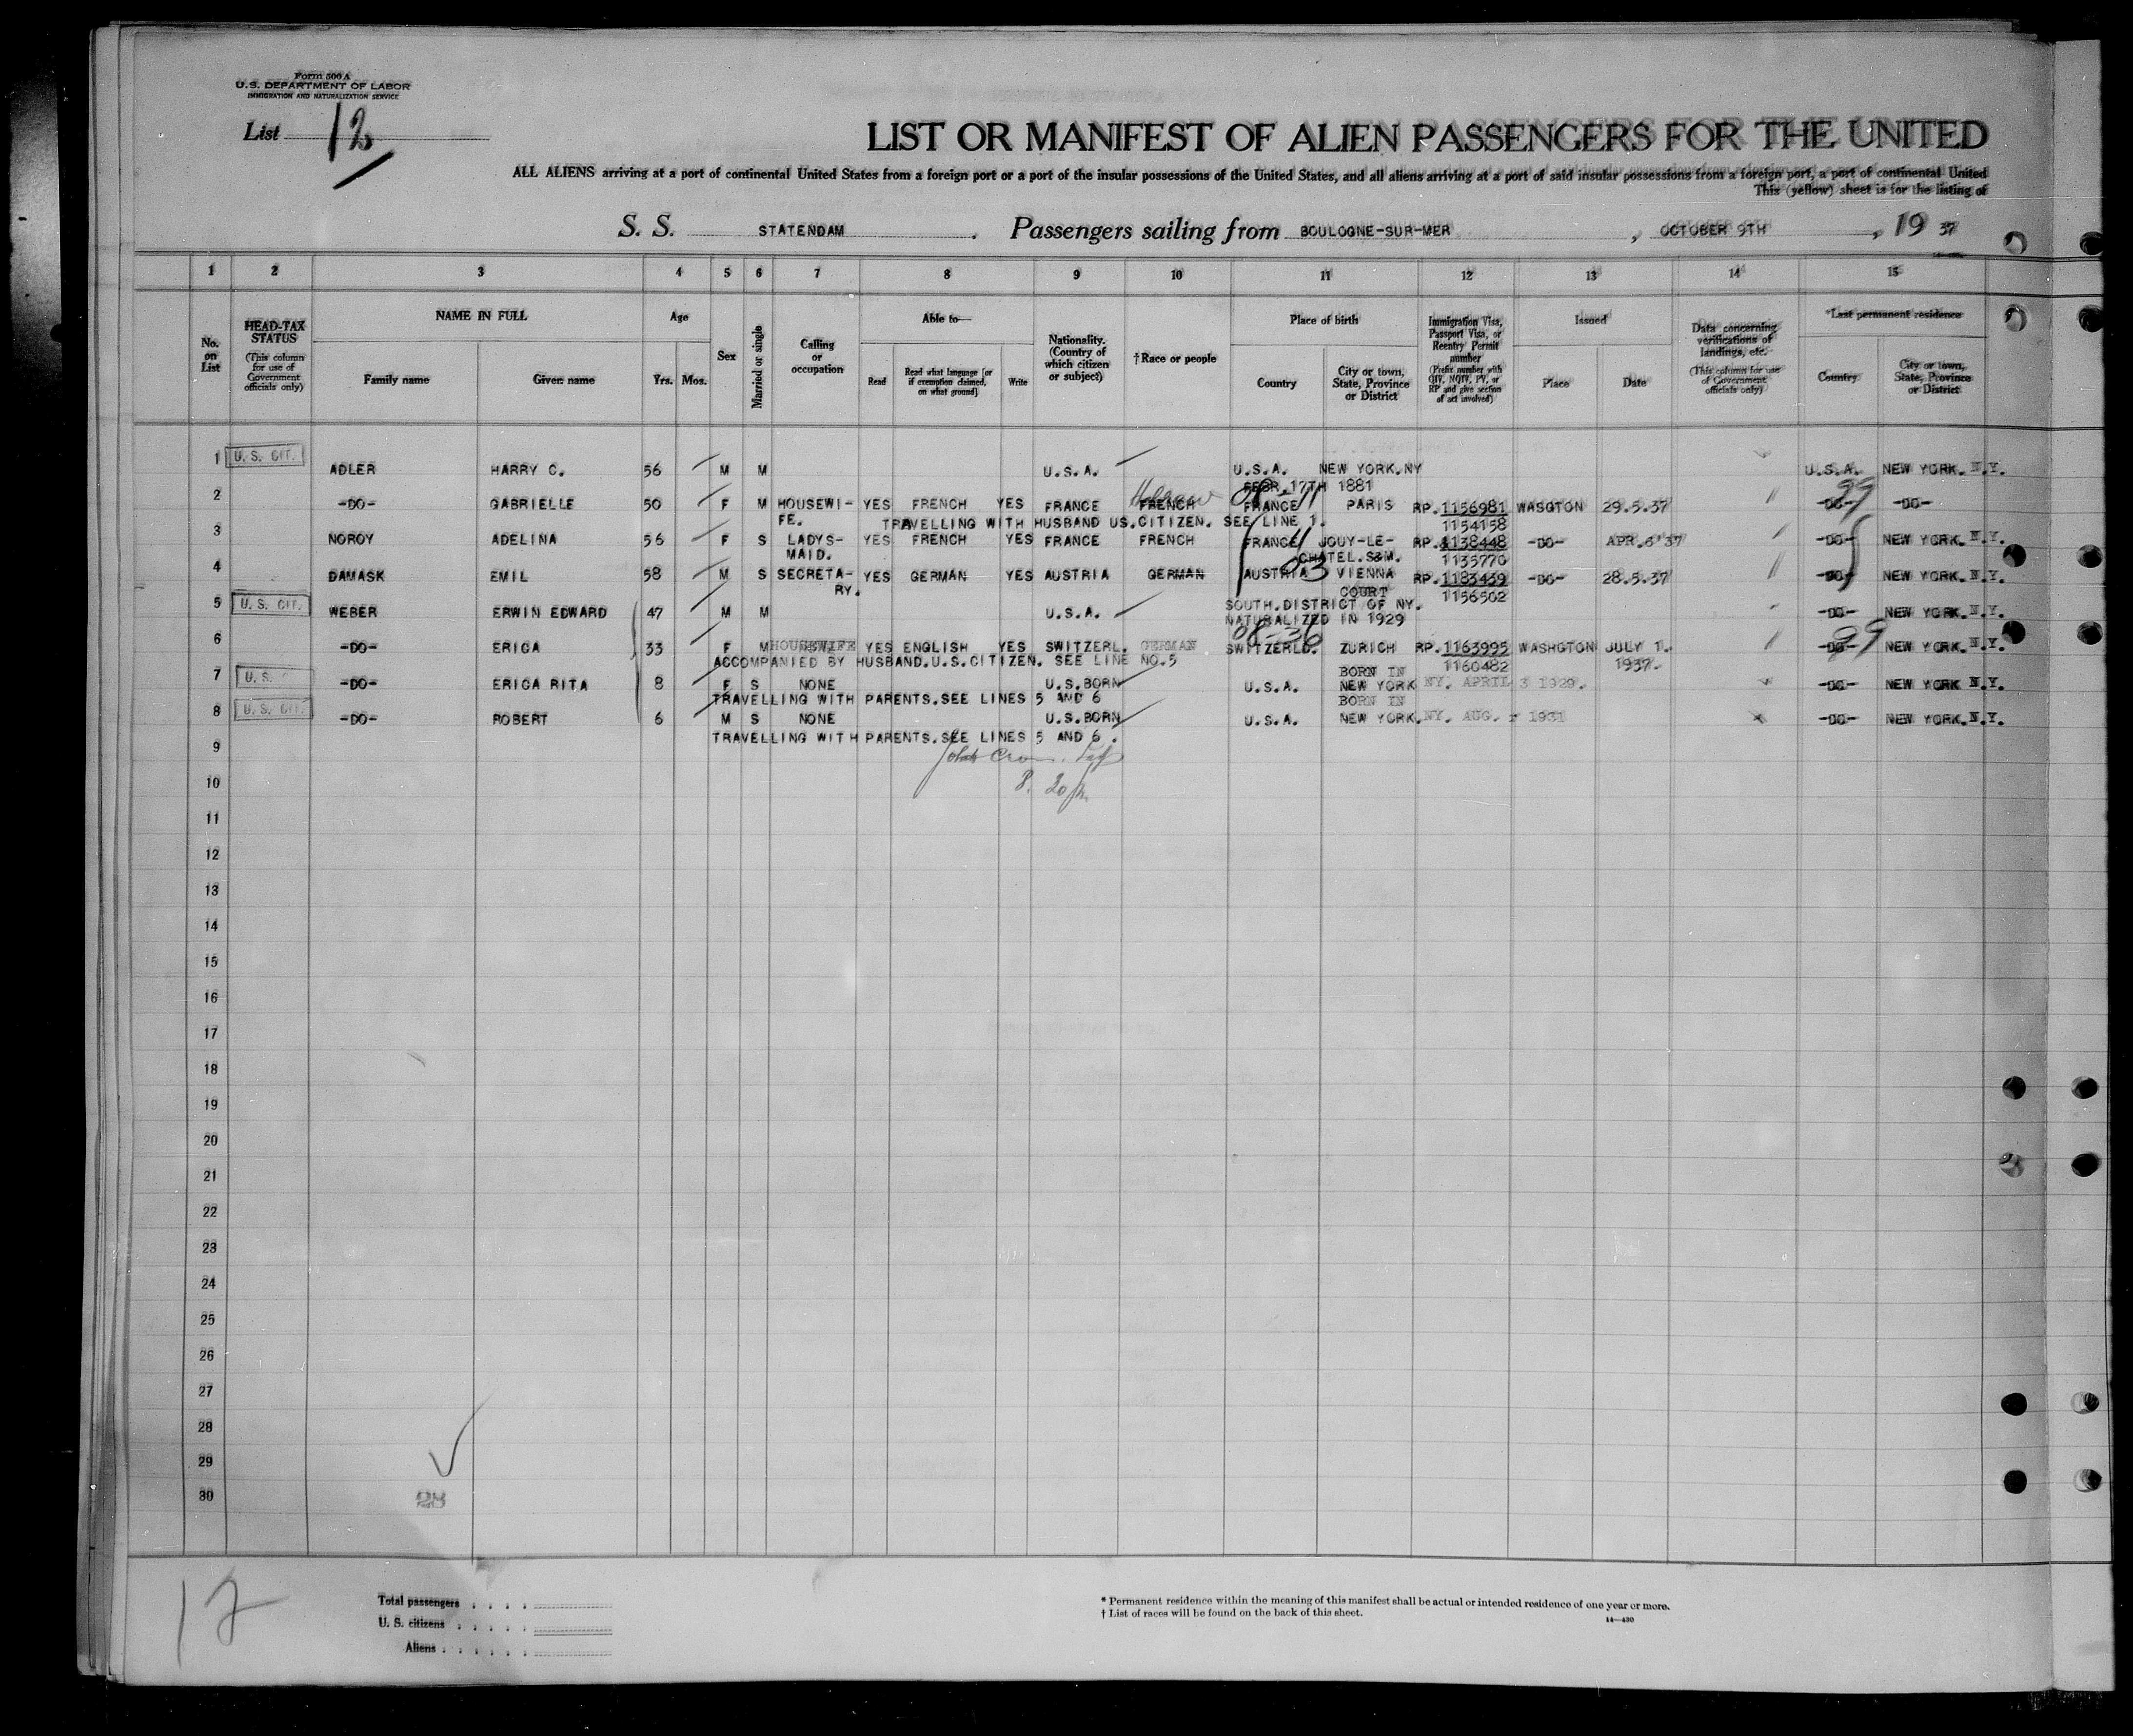 Form 500 A
U.S. DEPARTMENT OF LABOR
IMMIGRATION AND NATURALIZATION SERVICE
List 12
LIST OR MANIFEST OF ALIEN PASSENGERS FOR THE UNITED
ALL ALIENS arriving at a port of continental United States from a foreign port or a port of the insular possessions of the United States, and all aliens arriving at a port of said insular possessions from a foreign port, a port of continental United
This (yellow) sheet is for the listing of
S. S. STATENDAM . Passengers sailing from BOULOGNE-SUR-MER , OCTOBER 9TH , 19 37
1 2 3 4 5 6 7 8 9 10 11 12 13 14 15
No. on List
HEAD-TAX STATUS (This column for use of Government officials only)
NAME IN FULL Family name Given name
Age Yrs. Mos.
Sex
Married or single
Calling or occupation
Able to— Read Read what language [or if exemption claimed, on what ground] Write
Nationality. (Country of which citizen or subject)
†Race or people
Place of birth Country City or town, State, Province or District
Immigration Visa, Passport Visa, or Reentry Permit number (Prefix number with QIV, NQIV, PV, or RP and give section of act involved)
Issued Place Date
Data concerning verifications of landings, etc. (This column for use of Government officials only)
*Last permanent residence Country City or town, State, Province or District
1 U.S. CIT. ADLER HARRY C. 56 M M U.S.A. U.S.A. NEW YORK.NY U.S.A. NEW YORK. N.Y.
FEBR.17TH 1881
2 -DO- GABRIELLE 50 F M HOUSEWI- YES FRENCH YES FRANCE Hebrew FRENCH FRANCE PARIS RP.1156981 WASGTON 29.5.37 -DO- 99 -DO-
FE. TRAVELLING WITH HUSBAND US.CITIZEN. SEE LINE 1. 1154158
3 NOROY ADELINA 56 F S LADYS- YES FRENCH YES FRANCE FRENCH FRANCE JOUY-LE- RP.1138448 -DO- APR.6'37 -DO- NEW YORK. N.Y.
MAID. CHATEL.S&M. 1135770
4 DAMASK EMIL 58 M S SECRETA- YES GERMAN YES AUSTRIA GERMAN AUSTRIA VIENNA RP.1183439 -DO- 28.5.37 -DO- NEW YORK. N.Y.
RY. COURT 1156502
SOUTH.DISTRICT OF NY.
5 U.S. CIT. WEBER ERWIN EDWARD 47 M M U.S.A. -DO- NEW YORK. N.Y.
NATURALIZED IN 1929
6 -DO- ERICA 33 F M HOUSEWIFE YES ENGLISH YES SWITZERL. GERMAN SWITZERLD. ZURICH RP.1163995 WASHGTON JULY 1. -DO- 99 NEW YORK. N.Y.
ACCOMPANIED BY HUSBAND.U.S.CITIZEN. SEE LINE NO.5 1160482 1937.
BORN IN
7 U.S. -DO- ERICA RITA 8 F S NONE U.S.BORN U.S.A. NEW YORK NY. APRIL 3 1929. -DO- NEW YORK N.Y.
TRAVELLING WITH PARENTS.SEE LINES 5 AND 6 BORN IN
8 U.S. CIT. -DO- ROBERT 6 M S NONE U.S.BORN U.S.A. NEW YORK.NY. AUG. 1931 -DO- NEW YORK.N.Y.
TRAVELLING WITH PARENTS.SEE LINES 5 AND 6.
9
10
11
12
13
14
15
16
17
18
19
20
21
22
23
24
25
26
27
28
29
30
28
12
Total passengers
U. S. citizens
Aliens
* Permanent residence within the meaning of this manifest shall be actual or intended residence of one year or more.
† List of races will be found on the back of this sheet.
14—430